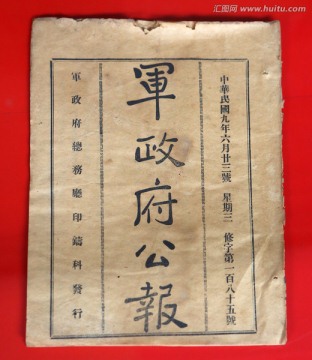 中華民國九年六月廿三號 星期三 修字第一百八十五號
軍政府公報
軍政府總務廳印鑄科發行
汇图网 www.huitu.com